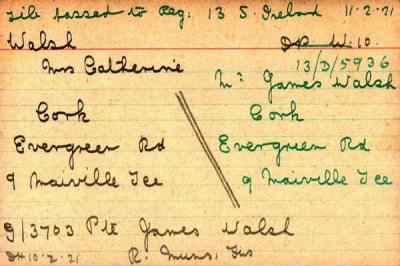 file passed to Reg: 13 S. Ireland 11.2.21
Walsh
DP W.10.
Mrs Catherine
13/D/5936
Mr James Walsh
Cork
Cork
Evergreen Rd
Evergreen Rd
9 Maiville Tce
9 Maiville Tce
9/3703 Pte James Walsh
DH 10.2.21 R. Muns. Fus